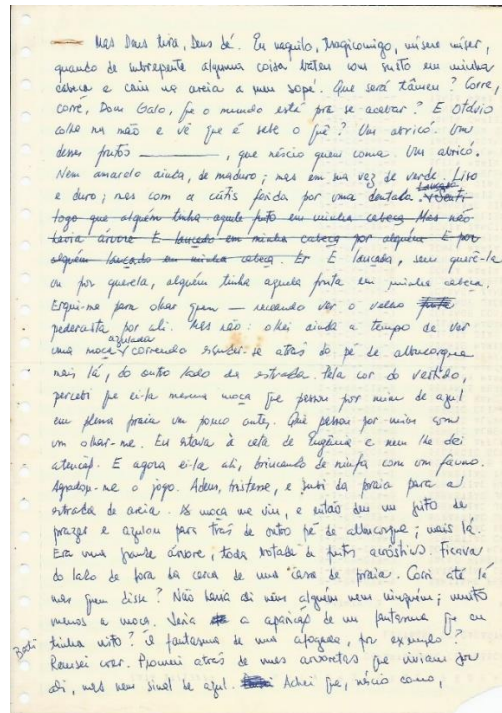 Mas Deus tira, Deus dá. Eu naquilo, tragicomigo, mísero míser,
quando de subrepente alguma coisa bateu com susto em minha
cabeça e caiu na areia a meu sopé. Que será tâmen? Corre,
corre, Dom Galo, que o mundo está pra se acabar? E Otávio
colhe na mão e vê que é sete o quê? Um abricó. Um
desses frutos ______, que néscio quem coma. Um abricó.
Nem amarelo ainda, de maduro; mas em sua vez de verde. Liso
e duro; mas com a cútis ferida por uma dentada.
logo que alguém tinha aquele fruto em minha cabeça Mas não
havia árvore E lançado em minha cabeça por alguém E por
alguém lançado em minha cabeça. E lançada, sem querê-la
ou por querela, alguém tinha aquela fruta em minha cabeça.
Ergui-me para olhar quem — receando ver o velho
pederasta por ali. Mas não: olhei ainda a tempo de ver
uma moça azulada correndo esconder-se atrás do pé de albucorque
mais lá, do outro lado da estrada. Pela cor do vestido,
percebi que ei-la mesma moça que passou por mim de azul
em plena praia um pouco antes. Que passou por mim com
um olhar-me. Eu estava à cela de Eugênia e nem lhe dei
atenção. E agora ei-la ali, brincando de ninfa com um fauno.
Agradou-me o jogo. Adeus, tristesse, e subi da praia para a
estrada de areia. A moça me viu, e então deu um grito de
prazer e azulou para trás de outro pé de albucorque; mais lá.
Era uma grande árvore, toda dotada de frutos Ficava
do lado de fora da cerca de uma casa de praia. Corri até lá
mas quem disse? Não havia ali nem alguém nem ninguém; muito
menos a moça. Seria a aparição de um fantasma que eu
tinha visto? O fantasma de uma afogada, por exemplo?
Procurei atrás de umas arvoretas que viviam por
ali, mas nem sinal de azul. Achei que, néscio como,